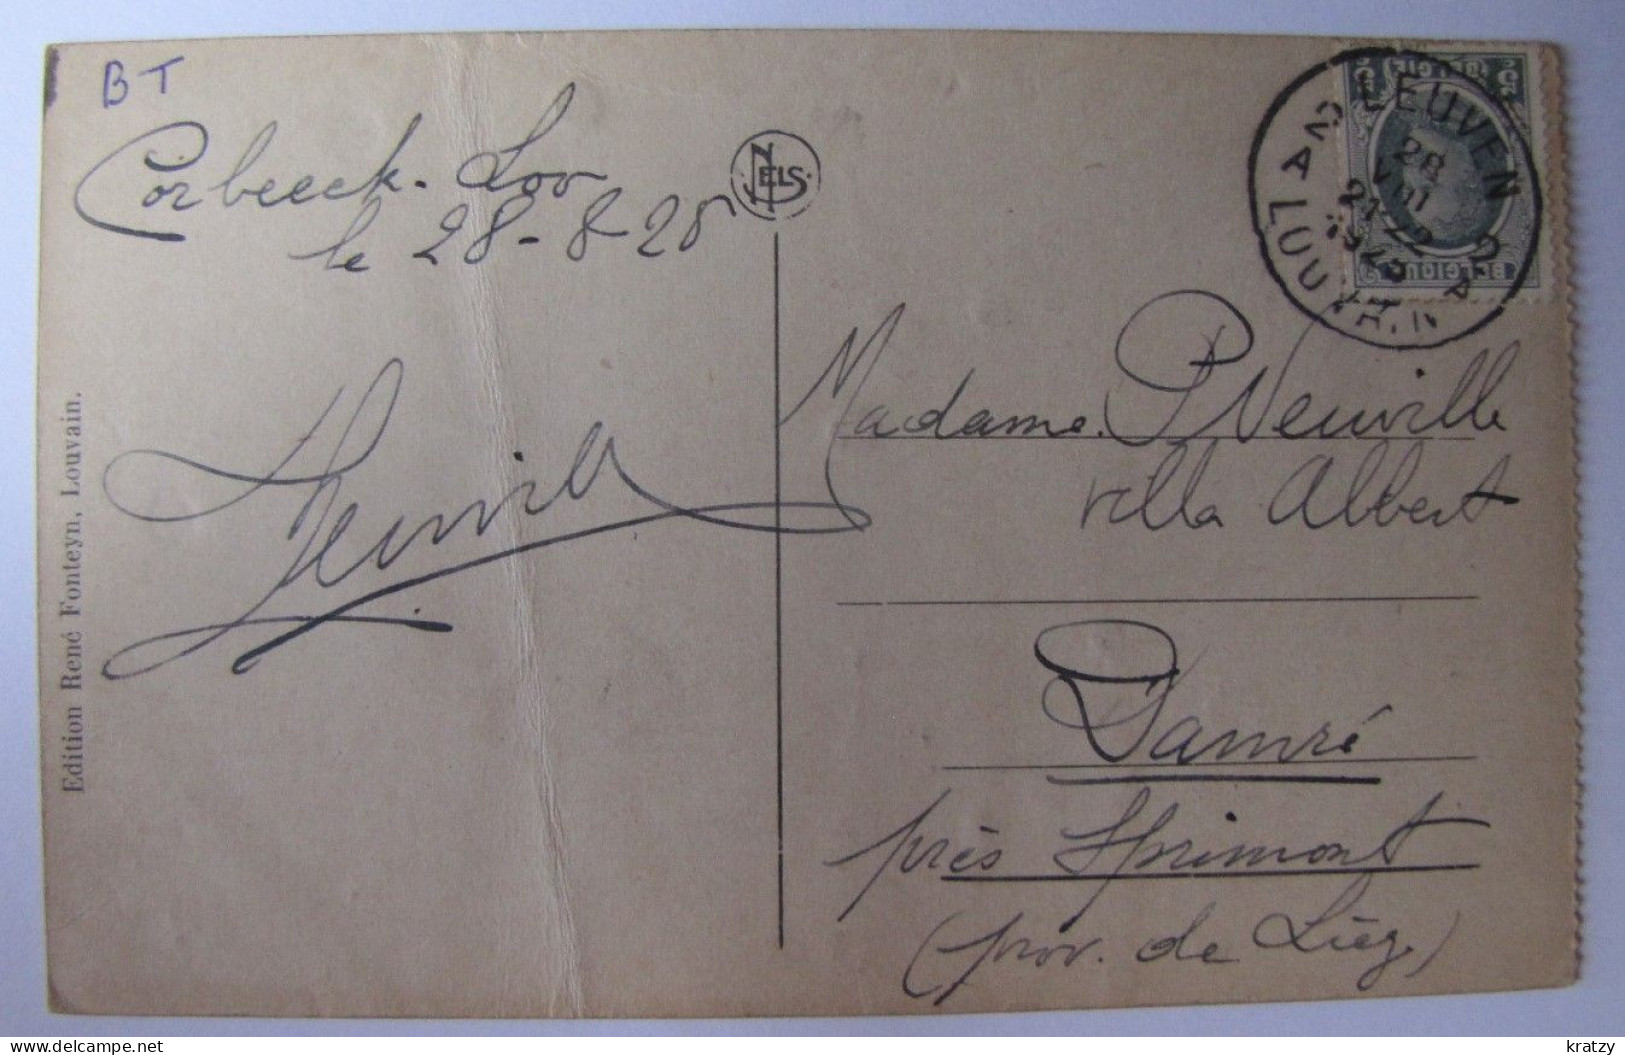 BT
Corbeeck-Loo
le 28-8-25
NELS
Edition René Fonteyn, Louvain.
Neuville
5c (BELGIË) 5c
BELGIQUE
2 LEUVEN 2
28
VIII
21-22
1925
A LOUVAIN A
Madame P Neuville
villa Albert
Damré
près Sprimont
(prov. de Liège)
delcampe.net
kratzy